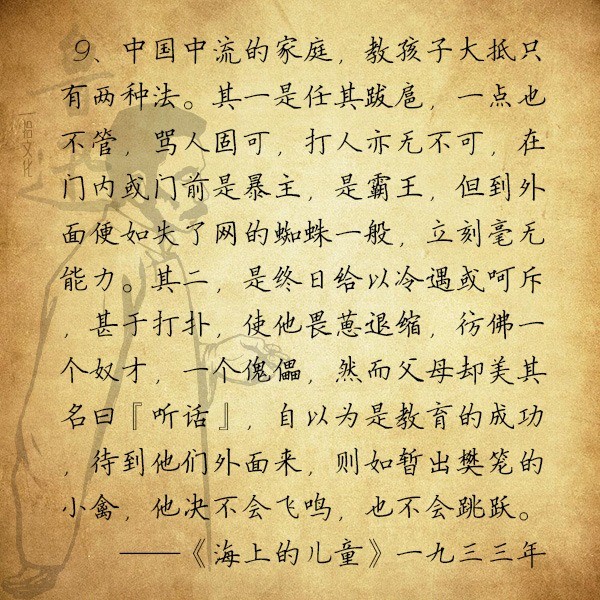 9、中国中流的家庭，教孩子大抵只
有两种法。其一是任其跋扈，一点也
不管，骂人固可，打人亦无不可，在
门内或门前是暴主，是霸王，但到外
面便如失了网的蜘蛛一般，立刻毫无
能力。其二，是终日给以冷遇或呵斥
，甚于打扑，使他畏葸退缩，彷佛一
个奴才，一个傀儡，然而父母却美其
名曰『听话』，自以为是教育的成功
，待到他们外面来，则如暂出樊笼的
小禽，他决不会飞鸣，也不会跳跃。
——《海上的儿童》一九三三年
拾文化